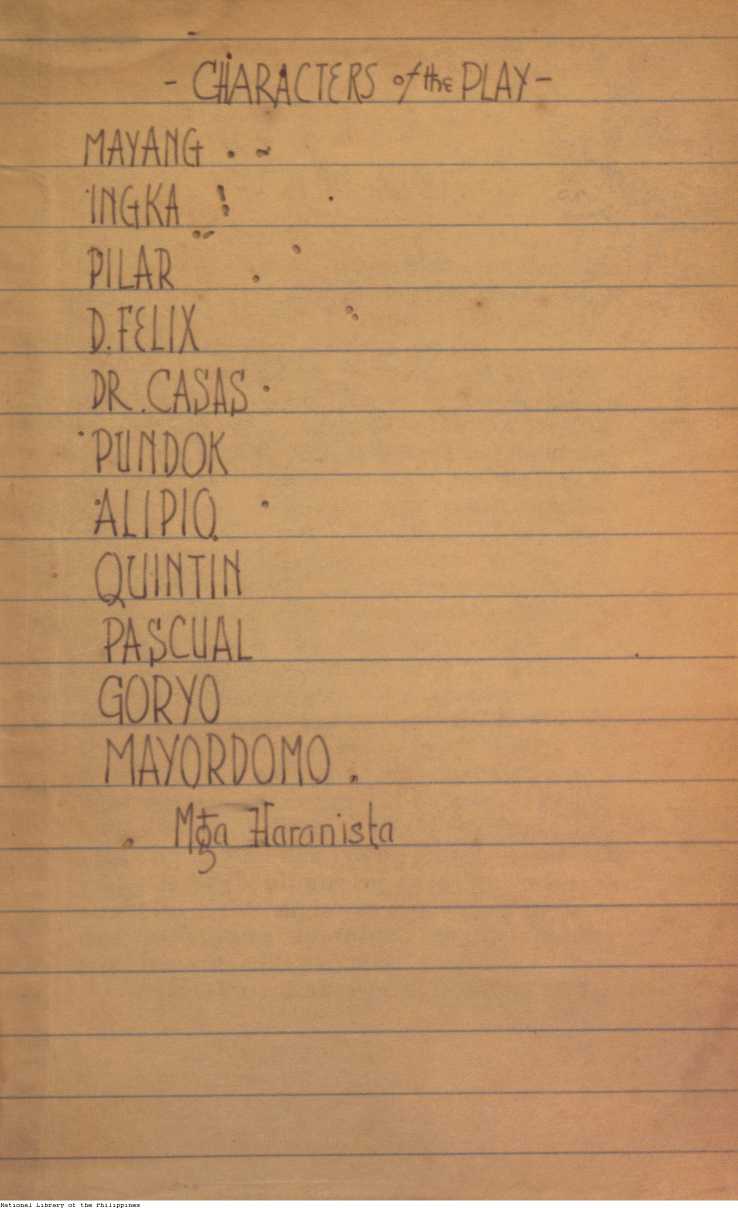 - CHARACTERS of the PLAY -
MAYANG
INGKA
PILAR
D. FELIX
DR. CASAS
PUNDOK
ALIPIO
QUINTIN
PASCUAL
GORYO
MAYORDOMO.
Mg̃a Haranista
National Library of the Philippines